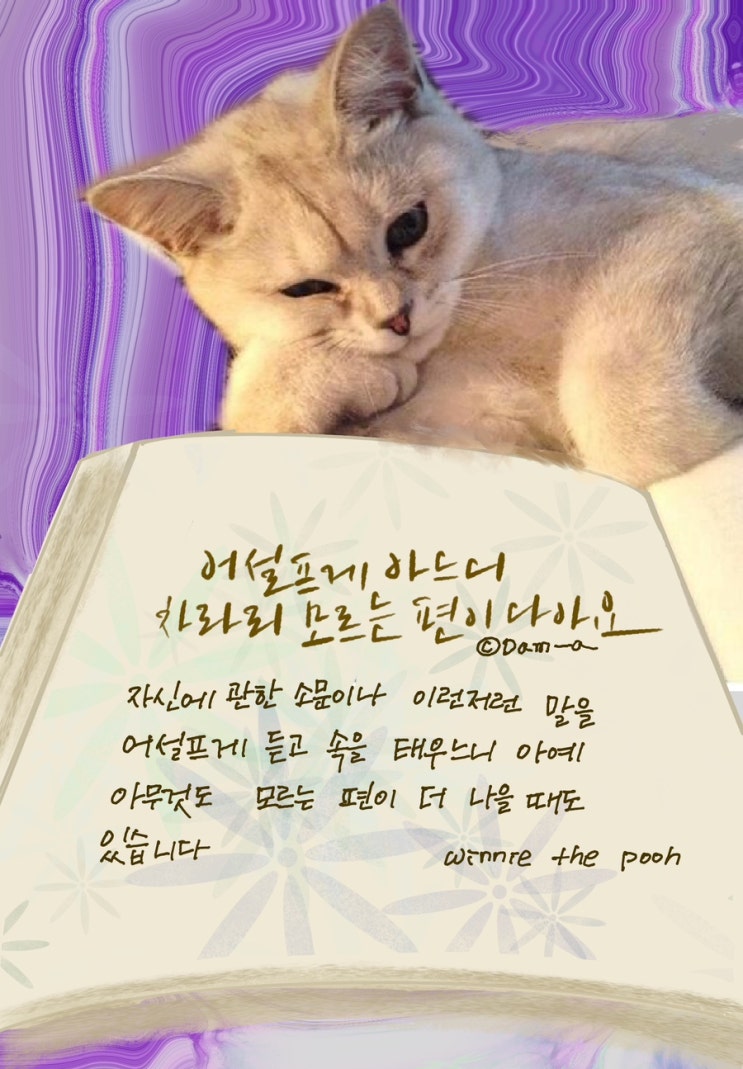 어설프게 아느니
차라리 모르는 편이 나아요
©Dam-a
자신에 관한 소문이나 이런저런 말을
어설프게 듣고 속을 태우느니 아예
아무것도 모르는 편이 더 나을 때도
있습니다
winnie the pooh